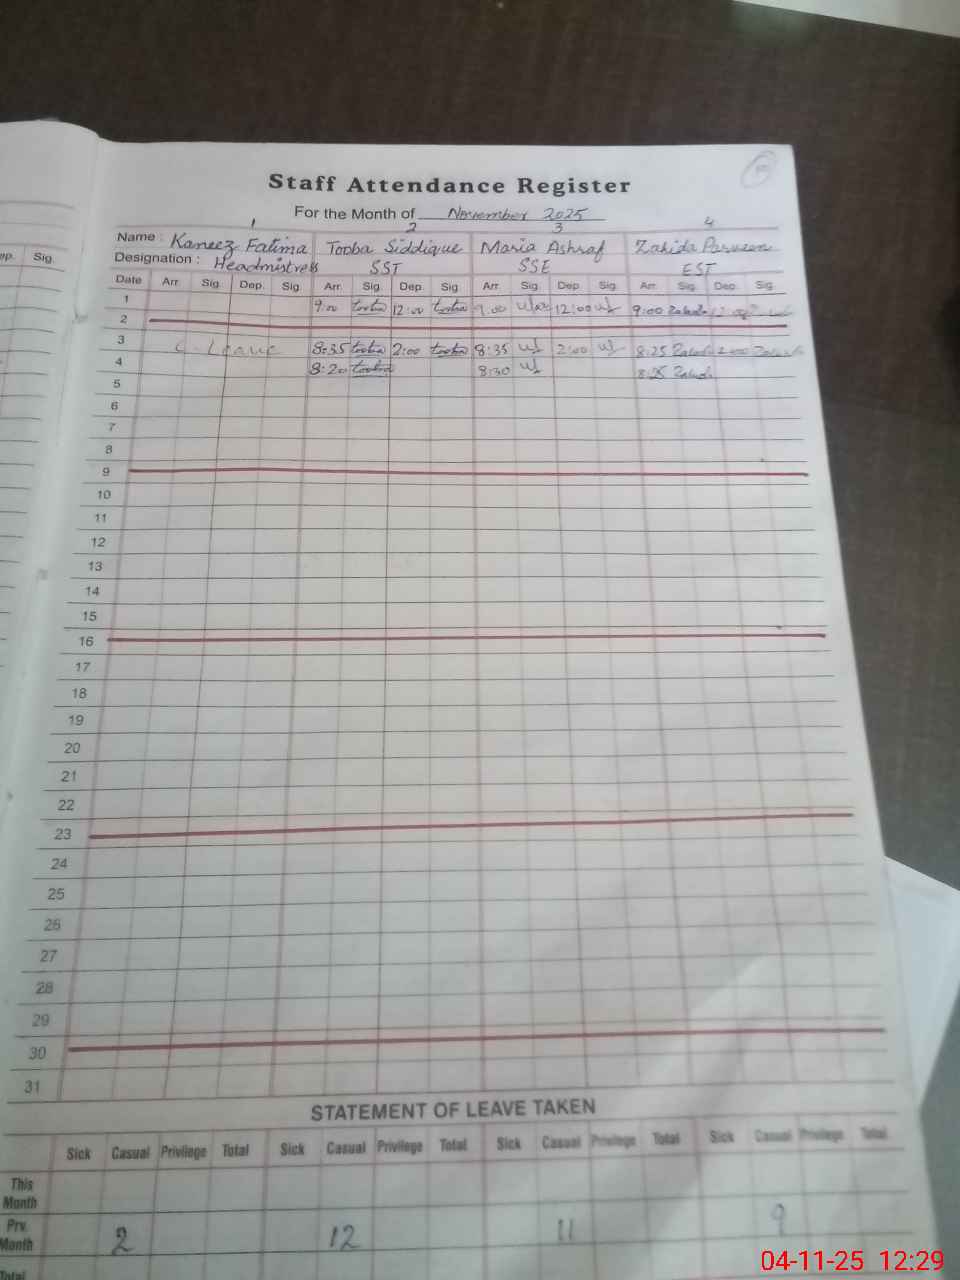 Staff Attendance Register
For the Month of November 2025
1 2 3 4
Name : Kaneez Fatima Tooba Siddique Maria Ashraf Zahida Parveen
Designation : Headmistress SST SSE EST
ep. Sig.
Date Arr. Sig. Dep. Sig. Arr. Sig. Dep. Sig. Arr. Sig. Dep. Sig. Arr. Sig. Dep. Sig.
1 9:00 tooba 12:00 tooba 9:00 12:00 9:00 Zahida
2
3 C-Leave 8:35 tooba 2:00 tooba 8:35 2:00 8:25 Zahida 2:00 Zahida
4 8:20 tooba 8:30 8:25 Zahida
5
6
7
8
9
10
11
12
13
14
15
16
17
18
19
20
21
22
23
24
25
26
27
28
29
30
31
STATEMENT OF LEAVE TAKEN
Sick Casual Privilege Total Sick Casual Privilege Total Sick Casual Privilege Total Sick Casual Privilege Total
This Month
Prv. Month 2 12 11 9
Total
04-11-25 12:29